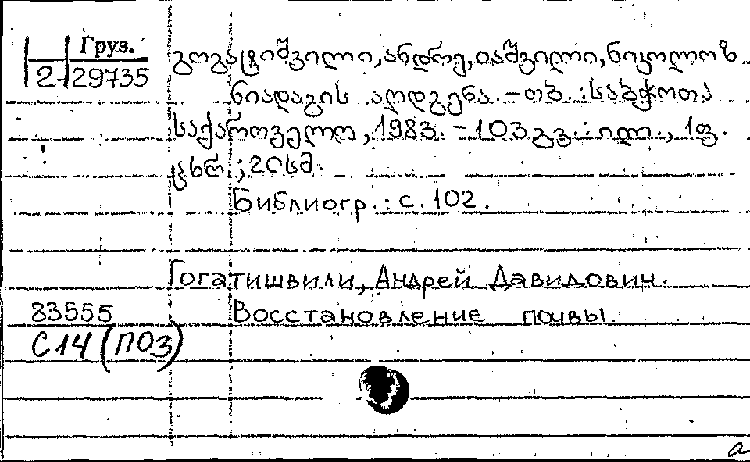 Груз.
2 29735
გოგატიშვილი, ანდრე, იაშვილი, ნიკოლოზ
ნიადაგის აღდგენა. – თბ. : საბჭოთა
საქართველო, 1983. – 103 გვ. : ილ., 1 ფ.
ცხრ. ; 20 სმ.
Библиогр.: с. 102.
Гогатишвили, Андрей Давидович.
83555 Восстановление почвы.
С14 (ПОЗ)
а